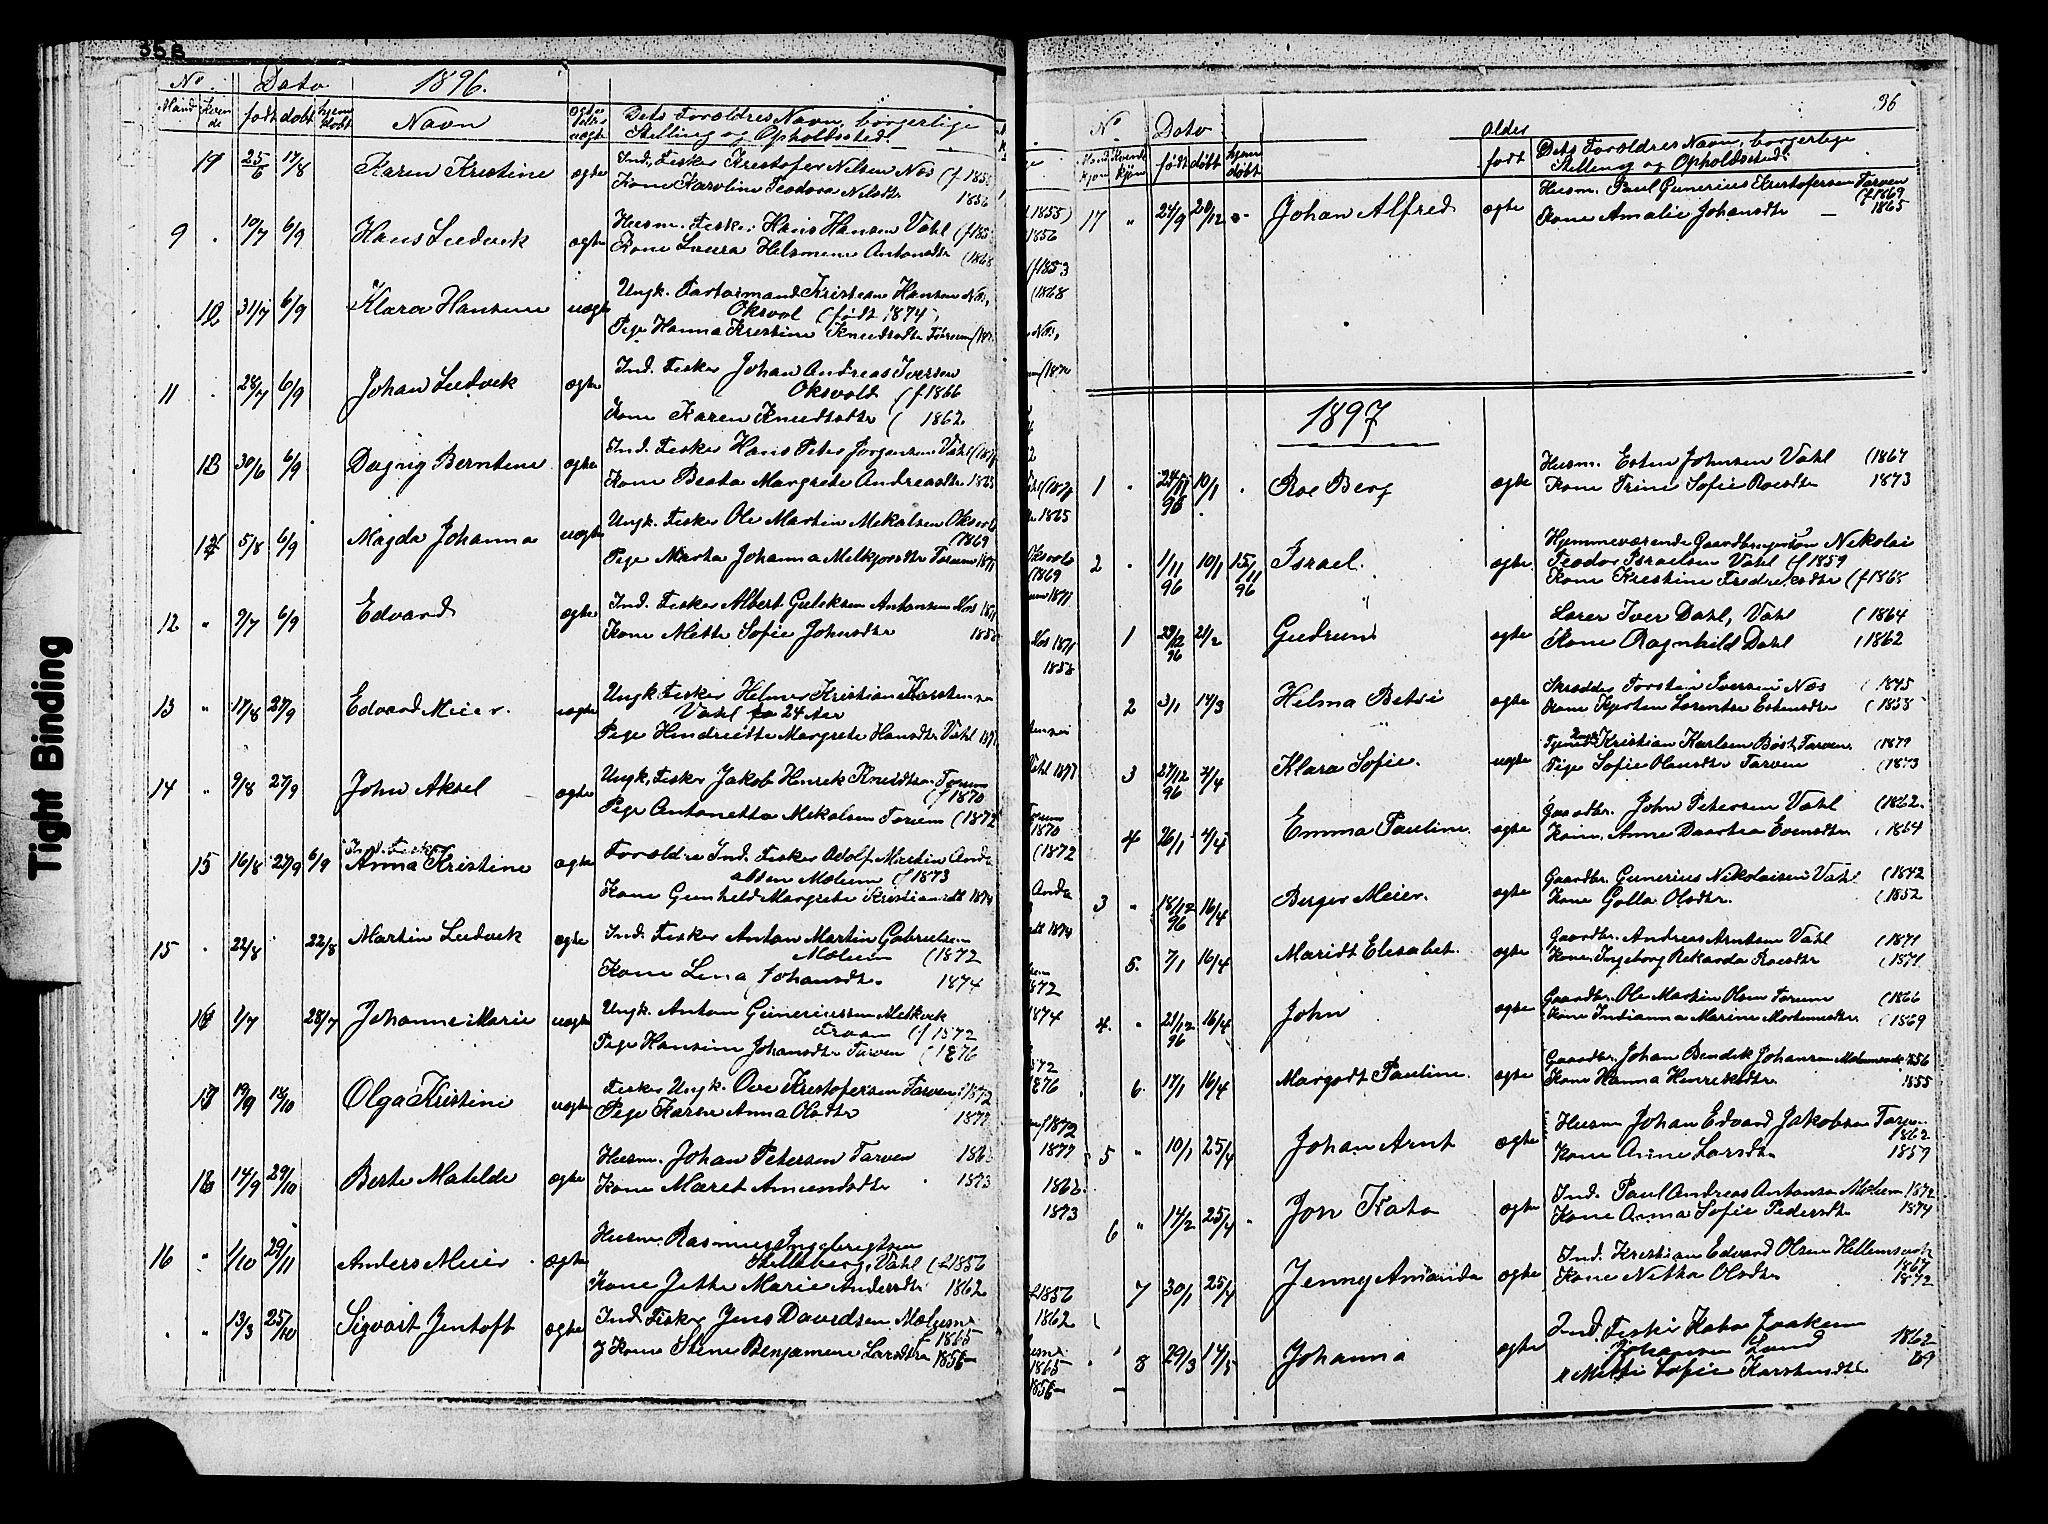 35 B
No. Dato 1896.
Mand Kvinde født døbt hjemdøbt Navn ægte eller uægte Dets Forældres Navn, borgerlige
Stilling og Opholdssted.
25/6 17/8 Karen Kristine ægte Ind. Fisker Kristofer Nelsen Næs
Kone Karoline Teodora Nilsdtr 1856
9 10/7 6/9 Hans Ludvik ægte Husm. Fisker Hans Hansen Vahl
Kone Laura Helsmine Antonsdtr (1868
31/7 6/9 Klara Hansine uægte Ungk. Kristian Hansen Næs,
Oksvol (født 1874)
Pige Hanna Kristine Knudsdtr
11 28/7 6/9 Johan Ludvik ægte Ind. Fisker Johan Andreas Iversen
Oksvold (f 1866
Kone Karen Knudsdtr (1862
30/6 6/9 Dagny Berntine ægte Ind. Fisker Hans Peter Jørgensen Vahl
Kone Berta Margrete Andreasdtr 1865
5/8 6/9 Magda Johanna uægte Ungk. Fisker Ole Martin Mikalsen Oksvol
1869
Pige Marta Johanna Melkjorsdtr Tarum 1871
12 " 9/7 6/9 Edvard ægte Ind. Fisker Albert Guliksen Antonsen Næs 1871
Kone Mette Sofie Johnsdtr 1858
13 " 17/8 27/9 Edvard Meier. uægte Ungk. Fisker Helmer Kristian Karstensen
Vahl 24 Aar
Pige Hindriette Margrete Hansdtr Vahl
14 " 9/8 27/9 John Aksel ægte Ungk. Fisker Jakob Henrik Knudsen Tarum
(f 1870
Pige Antonetta Mikalsen Tarum (1872
Ind. Fisker
15 16/8 27/9 6/9 Anna Kristine ægte Forældre Ind. Fisker Adolf Martin Anda
alsen Mælum (f 1873
Kone Gunhild Margrete Kristiansdt 1874
15 22/8 22/8 Martin Ludvik ægte Ind. Fisker Anton Martin Gabrielsen
Mælum (1872
Kone Lina Johansdtr. 1874
1/7 28/7 Johanne Marie uægte Ungk. Anton Guneriussen Melkvik
(f 1872
Pige Hansine Johansdtr Tarven (1876
19/9 18/10 Olga Kristine uægte Fisker Ungk. Ove Kristofersen Tarven 1872
Pige Karen Anna Olsdtr 1877
14/9 29/10 Berte Matilde ægte Husm. Johan Petersen Tarven 1862
Kone Maret Amundsdtr 1873
16 " 1/10 29/11 Anders Meier ægte Husm. Rasmus Ingebrigtsen
Vahl (1856
Kone Jette Marie Andersdtr 1862
" 13/3 25/10 Sigvart Jentoft ægte Ind. Fisker Jens Davidsen Mælum
f 1865
Kone Stine Benjamine Larsdtr 1856
36
No Dato
Mandkjøn Kvindekjøn født døbt hjemdøbt født Dets Forældres Navn, borgerlige
Stilling og Opholdssted.
17 " 24/9 20/12 Johan Alfred ægte Husm. Paul Gunerius Kristofersen Tarven
(f 1869
Kone Amalie Johansdtr 1865
1897
1 24/11 96 10/1 Roe Berg ægte Husm. Esten Johnsen Vahl (1867
Kone Trine Sofie Roesdtr 1873
2 1/11 96 10/1 15/11 96 Israel. ægte Hjemmeværende Nikolai
Teodor Israelsen Vahl (f 1859
Kone Kristine Fredriksdtr (f 1868
1 29/12 96 21/2 Gudrun ægte Lærer Iver Dahl, Vahl (1864
Kone Ragnhild Dahl (1862
2 3/1 14/3 Helma Betsie ægte Skrædder Torsten Iversen Næs (1845
Kone Kjersten Lorentse Estensdtr (1858
3 27/12 96 4/4 Klara Sofie. uægte Kristian Karlsen Tarven
Pige Sofie Olausdtr Tarven (1873
4 26/1 4/4 Emma Pauline. ægte Gaardbr. John Petersen Vahl (1862.
Kone Anne Daartea Evensdtr 1864
3 " 18/12 96 16/4 Berger Meier. ægte Gaardbr. Gunerius Nikolaisen Vahl (1842
Kone Golla Olsdtr. (1852
5. 7/1 16/4 Maridt Elisabet. ægte Gaardbr. Andreas Arntsen Vahl (1871
Kone Ingeborg Rikarda Roesdtr (1871.
4. " 21/12 96 16/4 John ægte Gaardbr. Ole Martin Olsen Tarum (1866
Kone Indianna Marine Mortensdtr. (1869
6. 17/1 16/4 Margodt Pauline. ægte Gaardbr. Johan Bendik Johansen 1856
Kone Hanna Henriksdtr 1855
5 " 10/1 25/4 Johan Arnt ægte Husm Johan Edvard Jakobsen Tarven
1862
Kone Anne Larsdtr 1859
6 " 14/2 25/4 Jon Kato ægte Ind. Paul Andreas Antonsen Mælum 1872
Kone Anna Sofie Pedersdtr 1874
7 30/1 25/4 Jenny Amanda ægte Ind. Kristian Edvard Olsen Hellemsvik
1867
Kone Nikka Olsdtr 1872
8 29/3 14/5 Johanna ægte Ind. Fisker Kato Joakim
Johansen Lund 1862
Mette Sofie Karstensdtr 69
Tight Binding